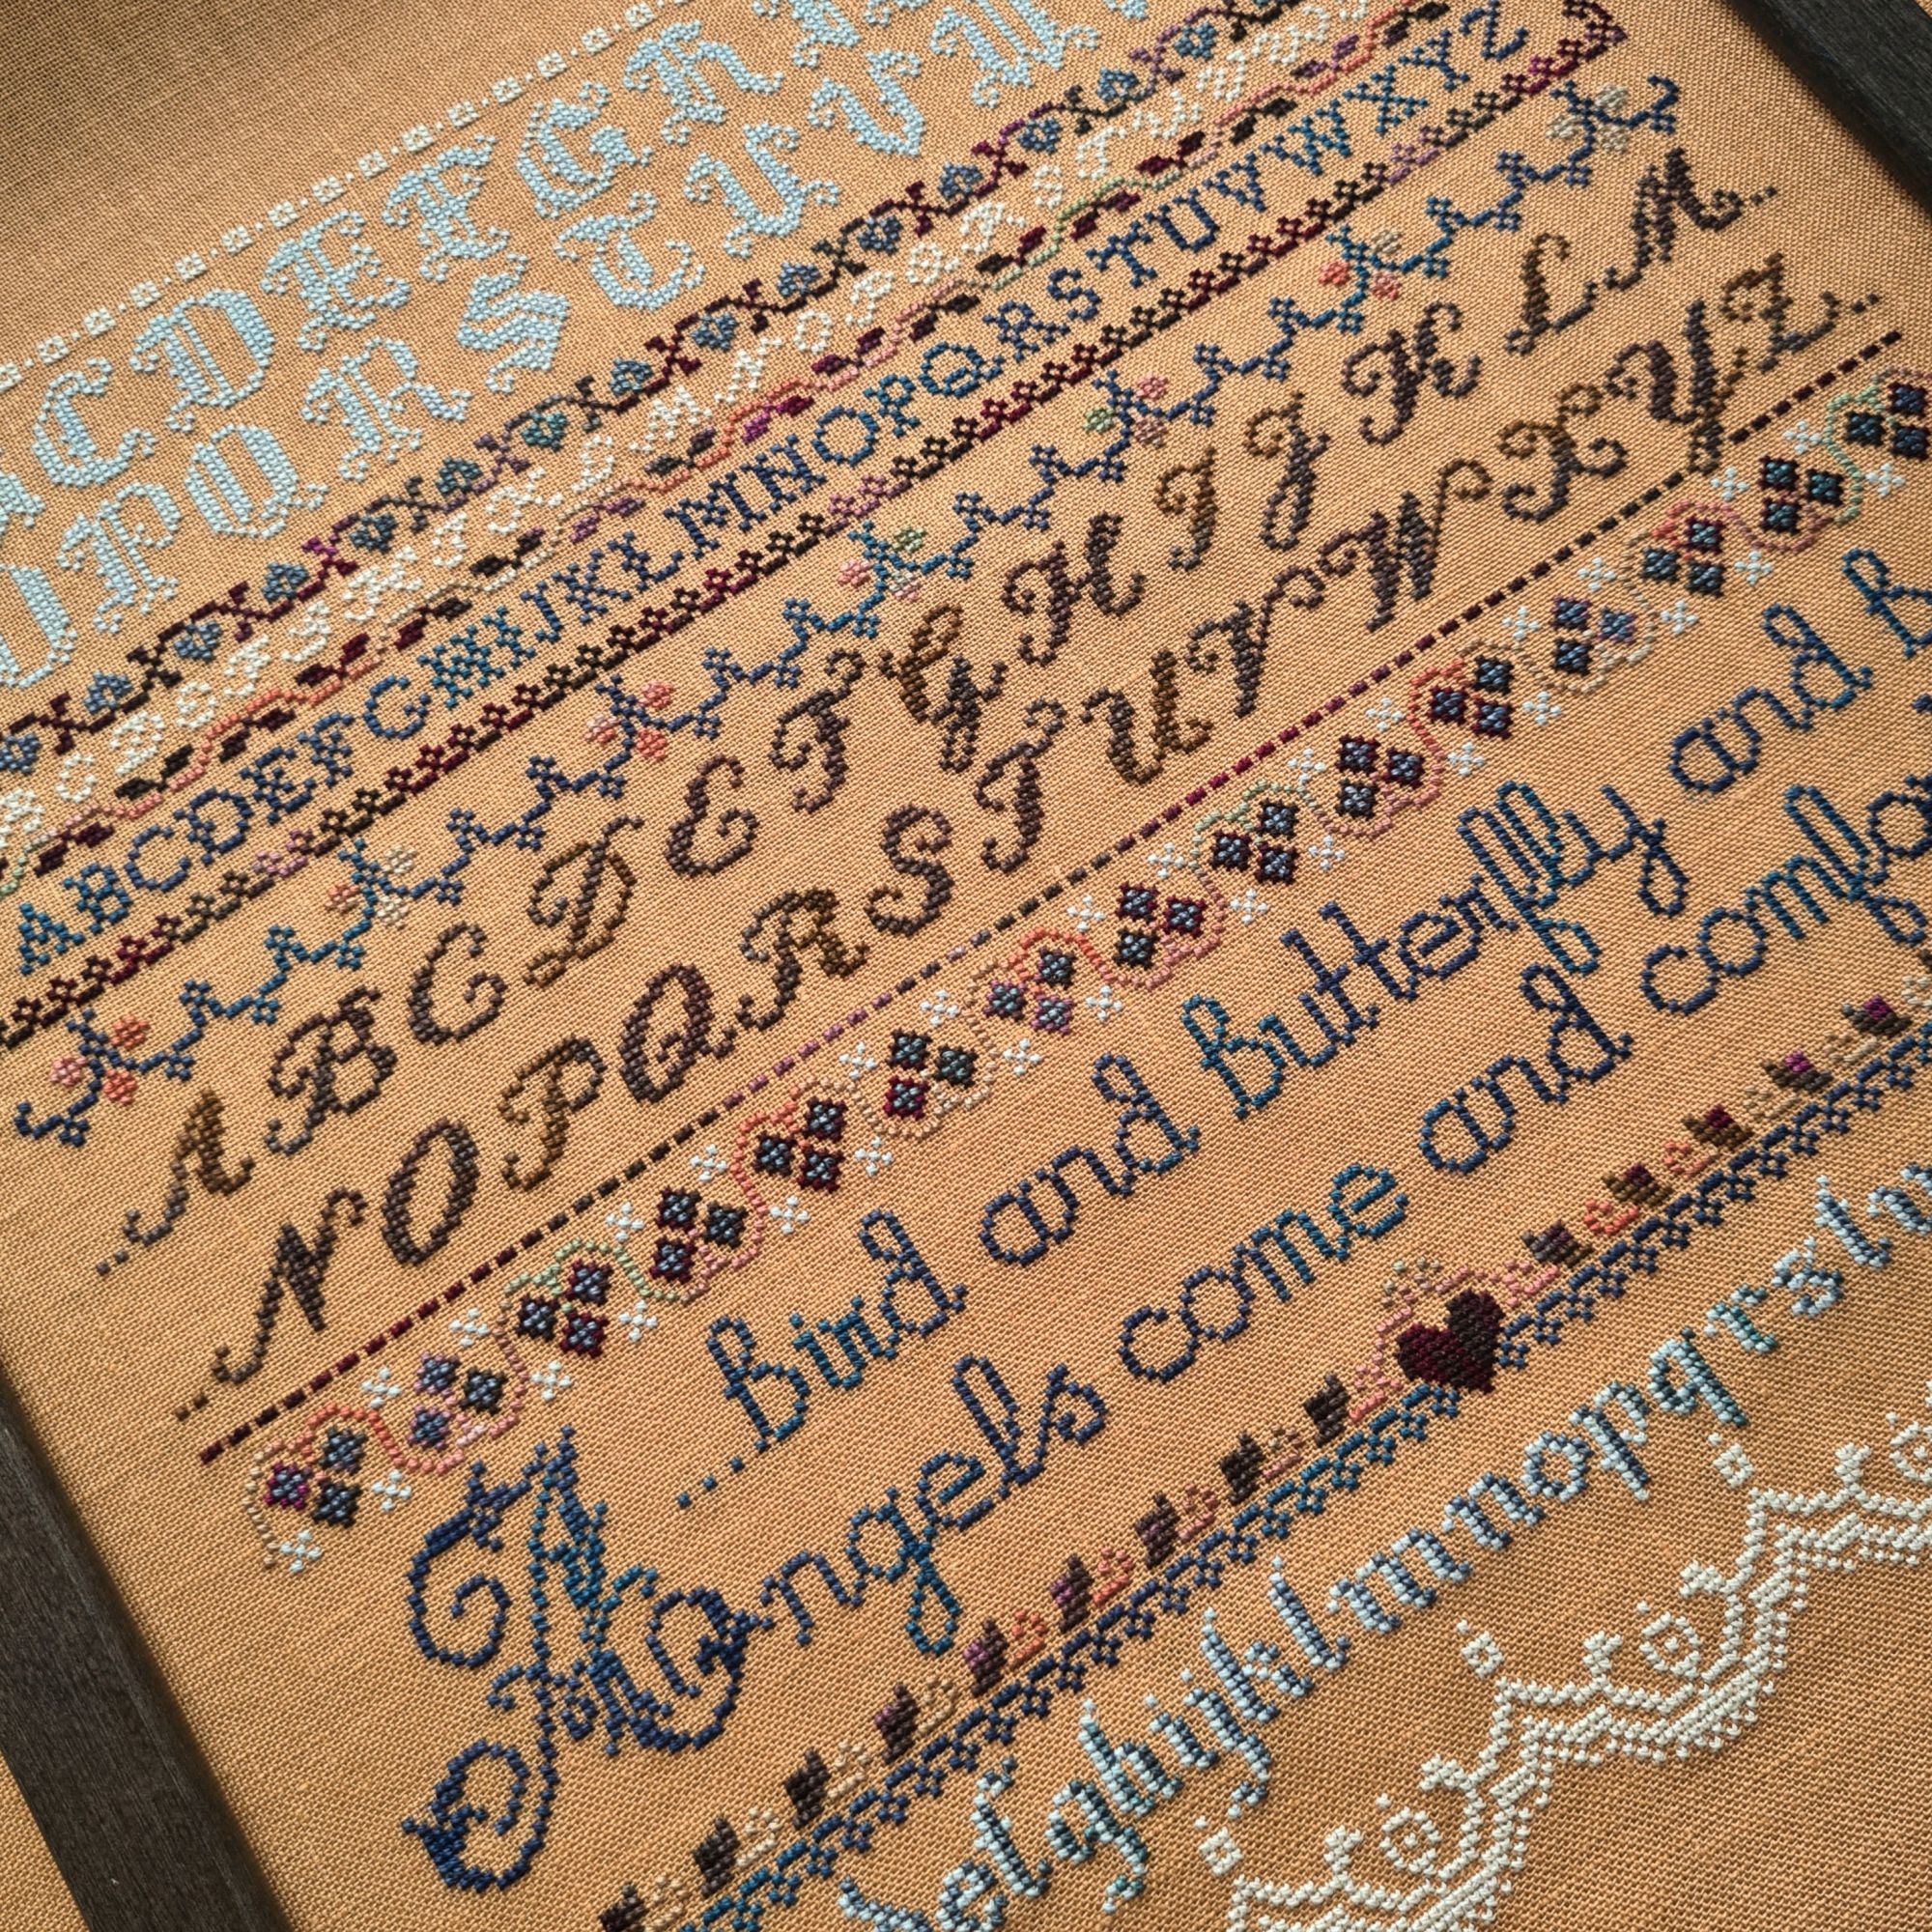 C D E F G H
O P Q R S T U V
A B C D E F G H I J K L M N O P Q R S T U V W X Y Z
A B C D E F G H I J K L M...
...N O P Q R S T U V W X Y Z...
....Bird and Butterfly and
Angels come and
efghijklmnopqrst